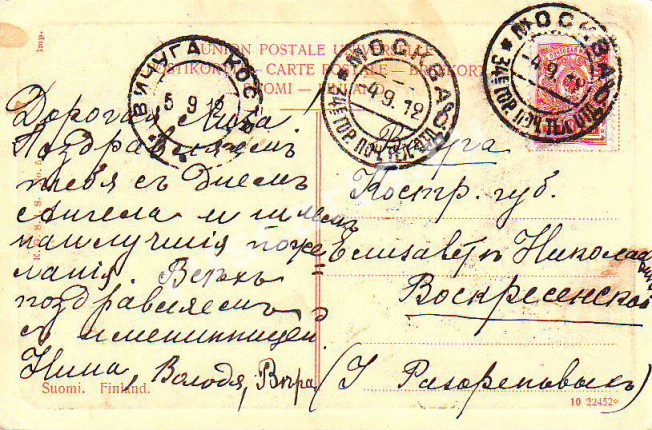 UNION POSTALE UNIVERSELLE
POSTIKORTTI – CARTE POSTALE – BREFKORT
SUOMI – FINLAND
ВИЧУГА КОС
5 9 12
МОСКВА
4.9.12
34Е ГОР. ПОЧ. ТЕЛ. ОТД.
МОСКВА
4.9.12
34Е ГОР. ПОЧ. ТЕЛ. ОТД.
Imp.
Дорогая Лиза
Поздравляем
тебя съ Днем
Ангела и шлем
наилучшія поже
ланія. Всѣхъ
поздравляемъ
с имениницей
Нина, Володя, Вѣра
Вичуга
Костр. губ.
Елизаветѣ Николаевнѣ
Воскресенской
(У Разореновыхъ)
Suomi. Finland.
10 22452*